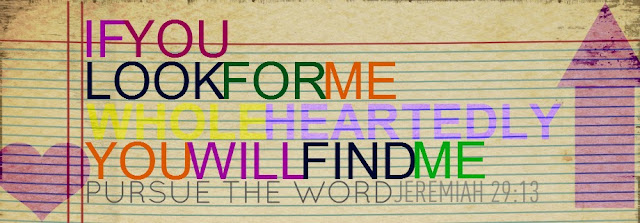 IF YOU
LOOK FOR ME
WHOLEHEARTEDLY
YOU WILL FIND ME
PURSUE THE WORD JEREMIAH 29:13